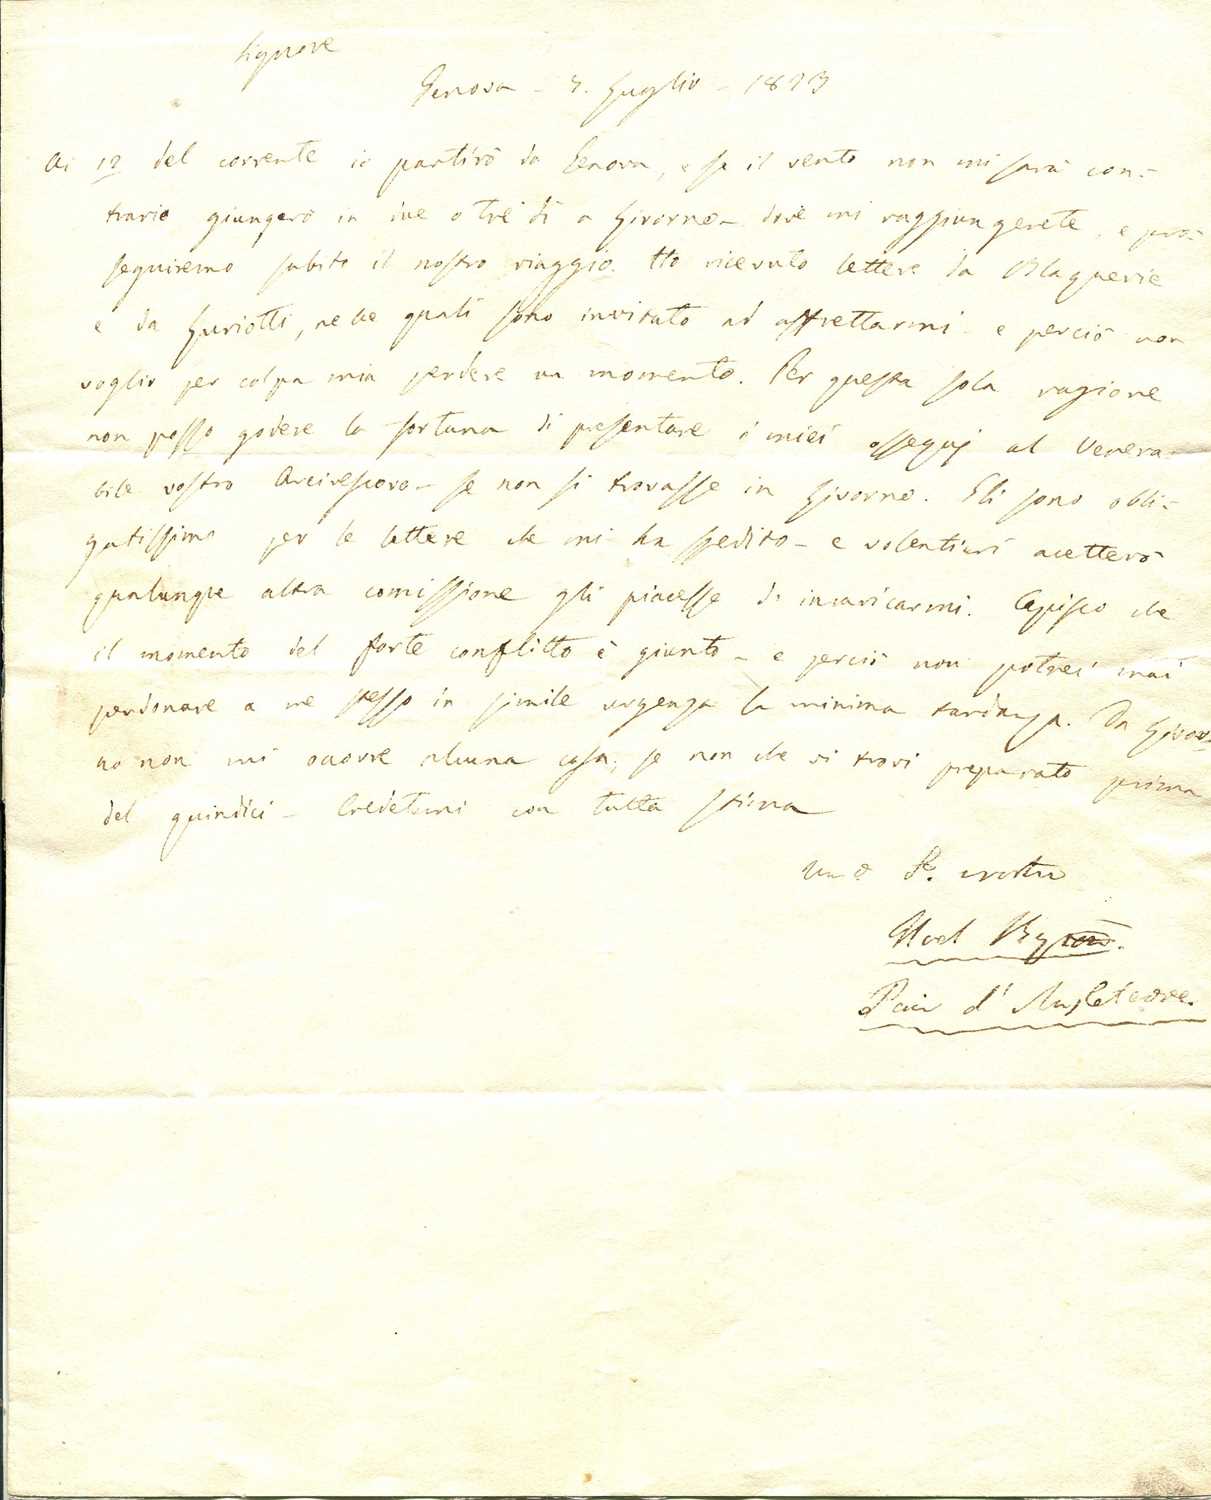 Signore
Genova - 7. Luglio - 1823
Ai 12 del corrente io partirò da Genova, e se il vento non mi sarà con-
trario giungerò in due o tre dì a Livorno - dove mi raggiungerete, e pro-
seguiremo subito il nostro viaggio. Ho ricevuto lettere da Blaquerie
e da Luriotti, nelle quali sono invitato ad affrettarmi - e perciò non
voglio per colpa mia perdere un momento. Per questa sola ragione
non posso godere la fortuna di presentare i miei ossequj al Venera-
bile vostro Arcivescovo - se non si trovasse in Livorno. Gli sono obli-
gatissimo per le lettere che mi ha spedito - e volentieri acetterò
qualunque altra comissione gli piacesse di incaricarmi. Capisco che
il momento del forte conflitto è giunto - e perciò non potrei mai
perdonare a me stesso in simile urgenza la minima tardanza. Da Livor-
no non mi ocorre alcuna cosa, se non che vi trovi preparato prima
del quindici - Credetemi con tutta stima
Sr. vostro
Noel Byron.
Pair d'Angleterre.